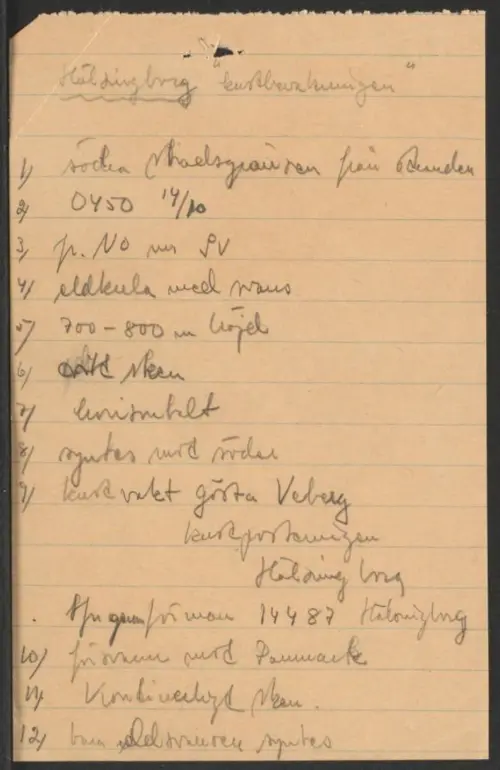 Hälsingborg "kustbevakningen"
1) södra stadsgränsen från stranden
2) 0450 14/10
3) fr. NO mot SV
4) eldkula med svans
5) 700-800 m höjd
6) vitt sken
7) horisontalt
8) syntes mot söder
9) kustvakt Gösta Veberg
kustposteringen
Hälsingborg
förman 14487 Hälsingborg
10) försvann mot Danmark
11) Kontinuerligt sken.
12) bara eldsvansen syntes